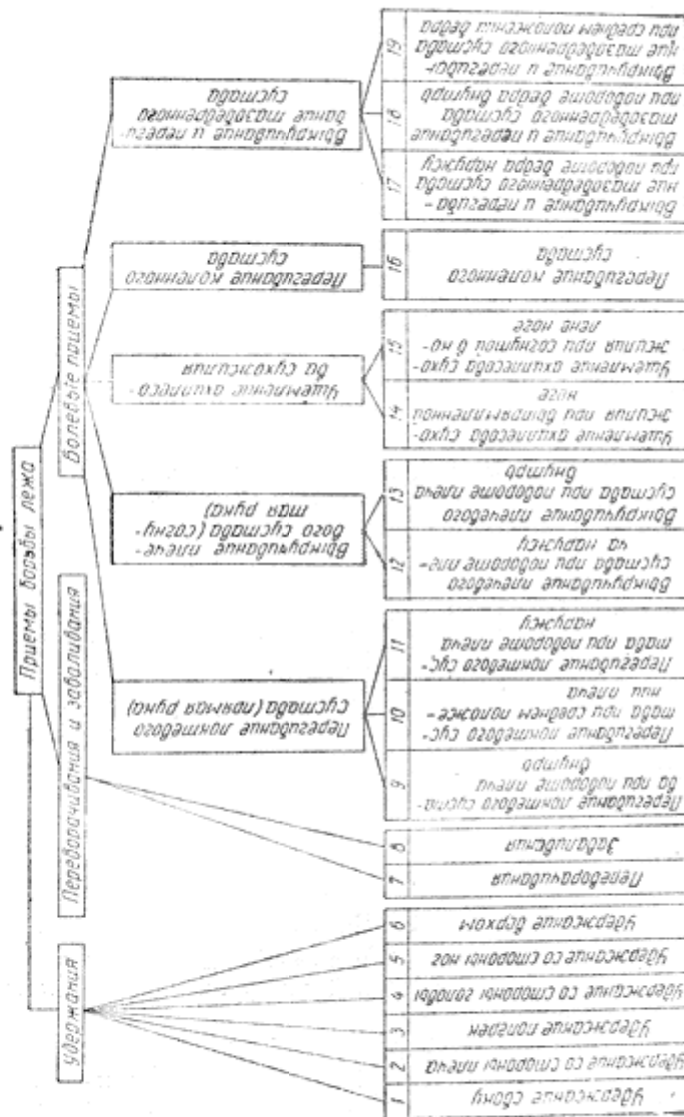 Приемы борьбы лежа
Удержания
Переворачивания и заваливания
Болевые приемы
Перегибание локтевого
сустава (прямая рука)
Выкручивание плече-
вого сустава (согну-
тая рука)
Ущемление ахиллесо-
ва сухожилия
Перегибание коленного
сустава
Выкручивание и переги-
бание тазобедренного
сустава
1
Удержание сбоку
2
Удержание со стороны плеча
3
Удержание поперек
4
Удержание со стороны головы
5
Удержание со стороны ног
6
Удержание верхом
7
Переворачивания
8
Заваливания
9
Перегибание локтевого суста-
ва при повороте плеча
внутрь
10
Перегибание локтевого сус-
тава при среднем положе-
нии плеча
11
Перегибание локтевого сус-
тава при повороте плеча
наружу
12
Выкручивание плечевого
сустава при повороте пле-
ча наружу
13
Выкручивание плечевого
сустава при повороте плеча
внутрь
14
Ущемление ахиллесова сухо-
жилия при выпрямленной
ноге
15
Ущемление ахиллесова сухо-
жилия при согнутой в ко-
лене ноге
16
Перегибание коленного
сустава
17
Выкручивание и перегиба-
ние тазобедренного сустава
при повороте бедра наружу
18
Выкручивание и перегибание
тазобедренного сустава
при повороте бедра внутрь
19
Выкручивание и перегиба-
ние тазобедренного сустава
при среднем положении бедра